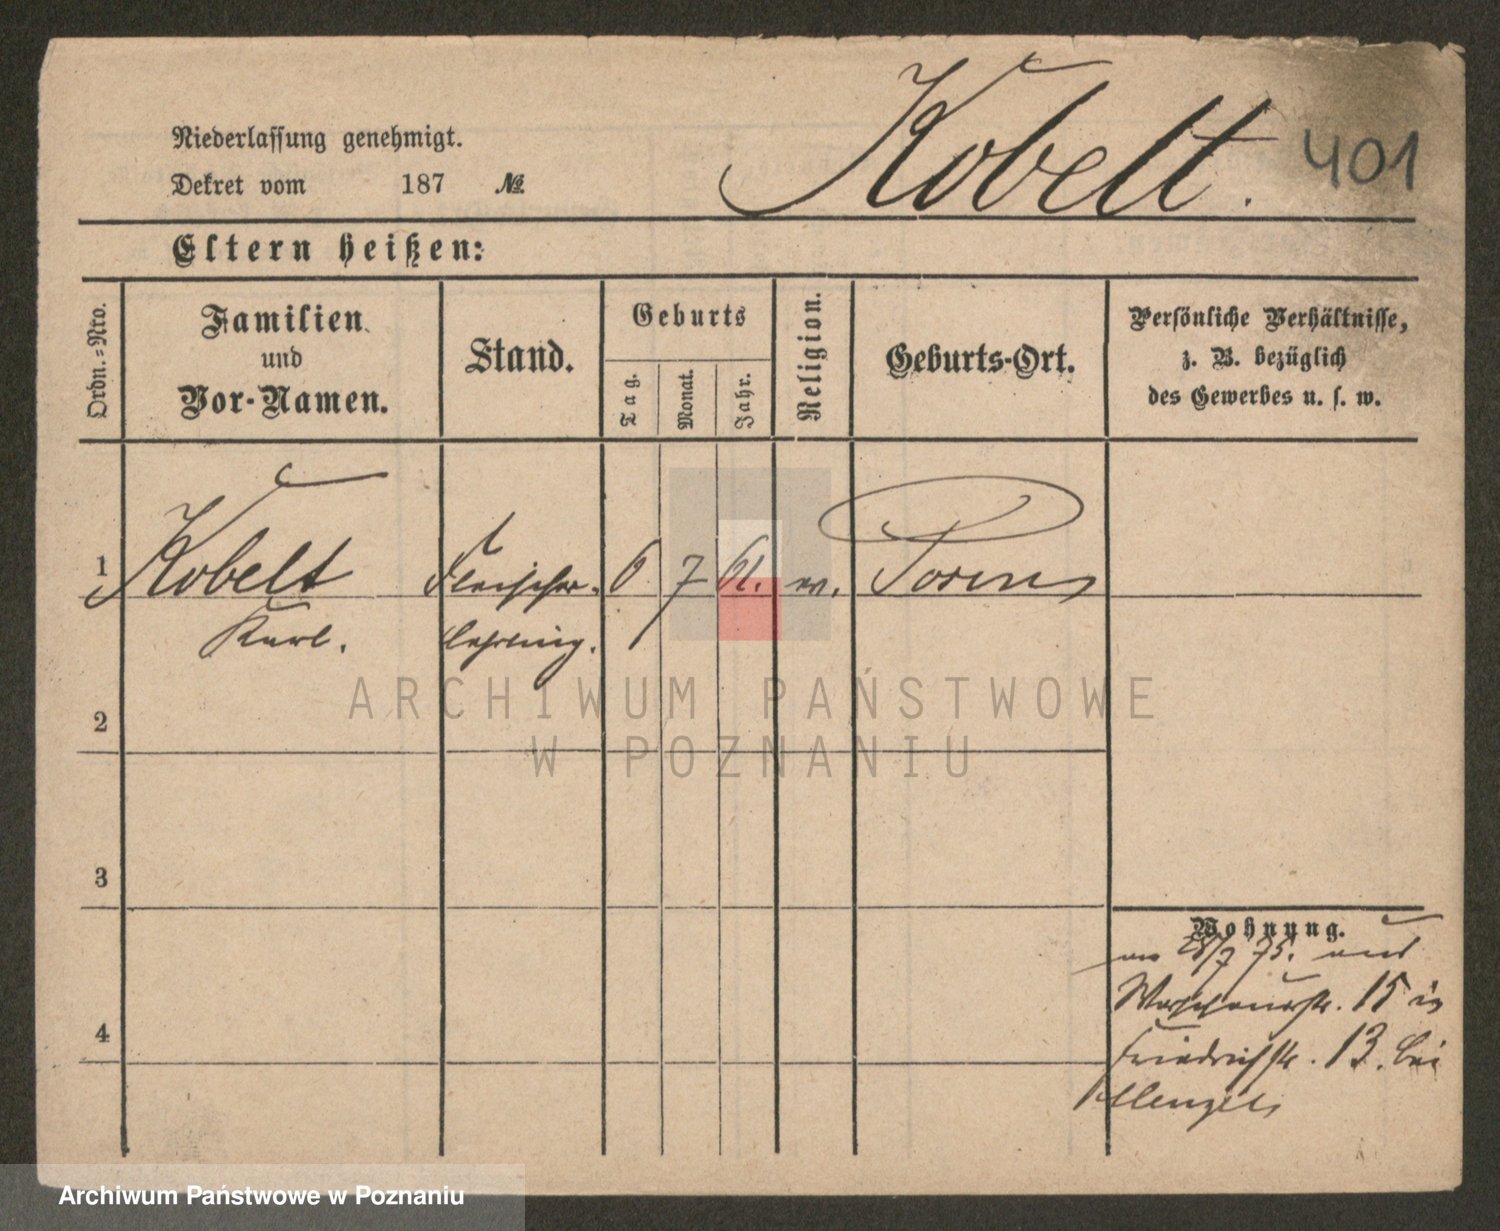 Kobelt.
401
Niederlassung genehmigt.
Dekret vom 187 №
Eltern heißen:
Ordn.=Nro.
Familien
und
Vor-Namen.
Stand.
Geburts
Tag.
Monat.
Jahr.
Religion.
Geburts-Ort.
Persönliche Verhältnisse,
z. B. bezüglich
des Gewerbes u. s. w.
1 Kobelt Fleischer- 6 7 61. ev. Posen
Karl. lehrling.
2
3
4
Wohnung.
28/7 75. aus
Warschauerstr. 15 in
Friedrichstr. 13. bei
Menzel
ARCHIWUM PAŃSTWOWE
W POZNANIU
Archiwum Państwowe w Poznaniu